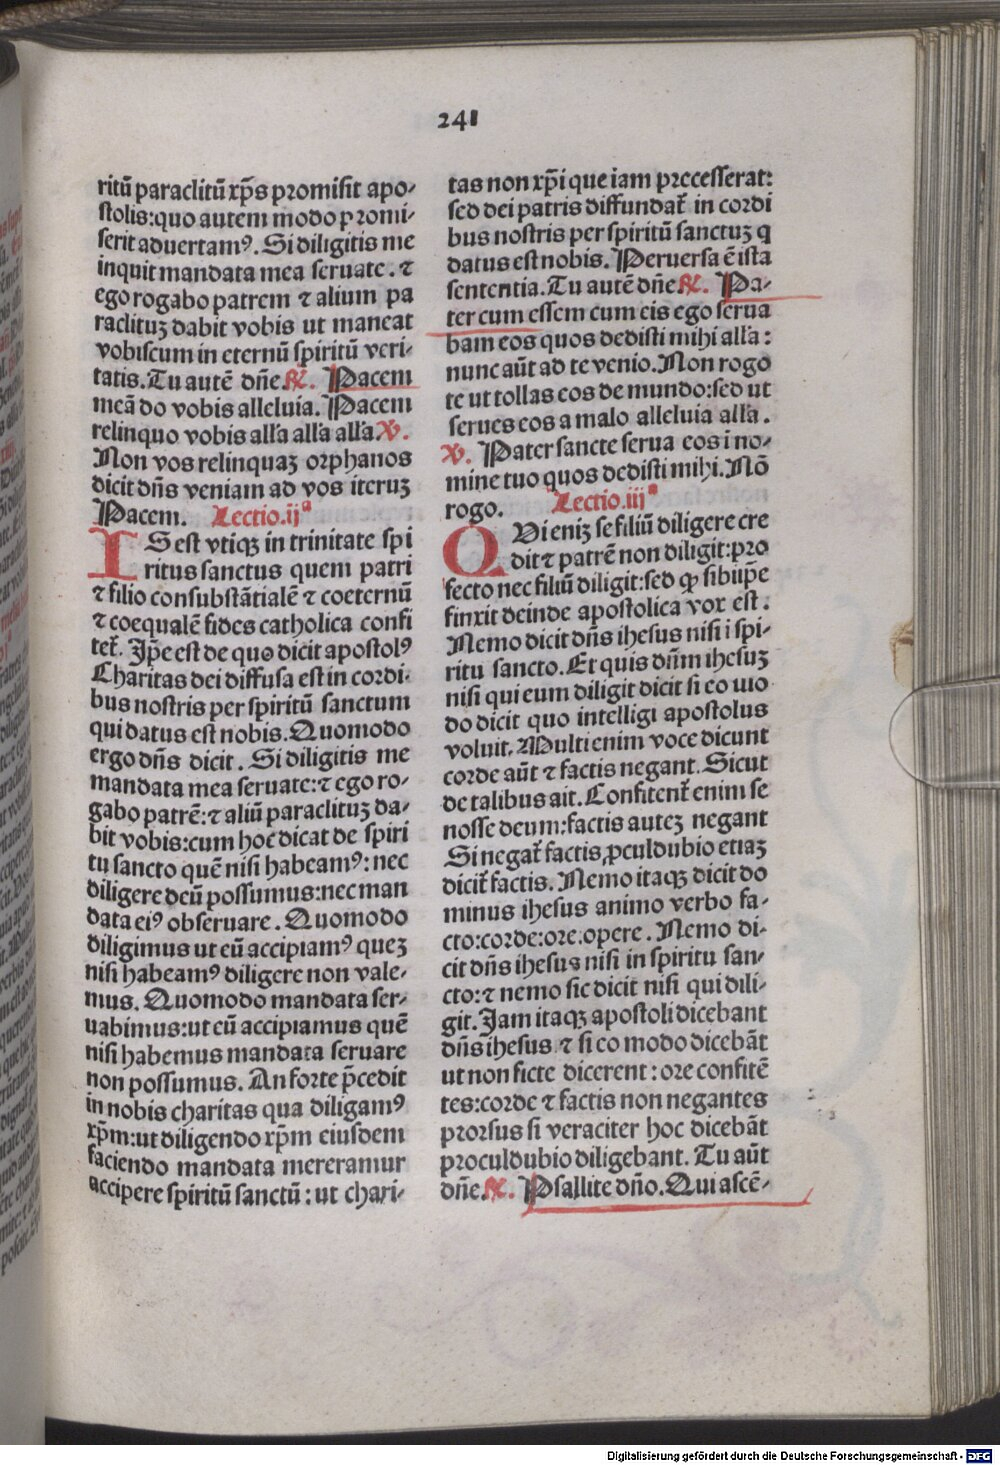 241
ritū paraclitū xp̄s promisit apo-
stolis:quo autem modo promi-
serit aduertamꝰ. Si diligitis me
inquit mandata mea seruate. ⁊
ego rogabo patrem ⁊ alium pa
raclituꝫ dabit vobis ut maneat
vobiscum in eternū spiritū veri-
tatis. Tu autē dn̄e ℟. Pacem
meā do vobis alleluia. Pacem
relinquo vobis alla alla alla ℣.
Non vos relinquaꝫ orphanos
dicit dn̄s veniam ad vos iteruꝫ
Pacem. Lectio.ijª
IS est vtiqꝫ in trinitate spi
ritus sanctus quem patri
⁊ filio consubstātialē ⁊ coeternū
⁊ coequalē fides catholica confi
tet᷑. Ip̄e est de quo dicit apostolꝰ
Charitas dei diffusa est in cordi-
bus nostris per spiritū sanctum
qui datus est nobis. Quomodo
ergo dn̄s dicit. Si diligitis me
mandata mea seruate:⁊ ego ro-
gabo patrē:⁊ aliū paraclituꝫ da-
bit vobis:cum hoc dicat de spiri
tu sancto quē nisi habeamꝰ: nec
diligere deū possumus:nec man
data eiꝰ obseruare. Quomodo
diligimus ut eū accipiamꝰ queꝫ
nisi habeamꝰ diligere non vale-
mus. Quomodo mandata ser-
uabimus:ut eū accipiamus quē
nisi habemus mandata seruare
non possumus. An forte p̄cedit
in nobis charitas qua diligamꝰ
xp̄m:ut diligendo xp̄m eiusdem
faciendo mandata mereramur
accipere spiritū sanctū: ut chari-
tas non xp̄i que iam precesserat:
sed dei patris diffundat᷑ in cordi
bus nostris per spiritū sanctuꝫ q
datus est nobis. Peruersa ē ista
sententia. Tu autē dn̄e ℟. Pa-
ter cum essem cum eis ego serua
bam eos quos dedisti mihi alla:
nunc aūt ad te venio. Non rogo
te ut tollas eos de mundo:sed ut
serues eos a malo alleluia alla.
℣. Pater sancte serua eos i no-
mine tuo quos dedisti mihi. Nō
rogo. Lectio.iijª
QVi eniꝫ se filiū diligere cre
dit ⁊ patrē non diligit:pro
fecto nec filiū diligit:sed ꝙ sibiip̄e
finxit deinde apostolica vox est.
Nemo dicit dn̄s ihesus nisi i spi-
ritu sancto. Et quis dn̄m ihesuꝫ
nisi qui eum diligit dicit si eo mo
do dicit quo intelligi apostolus
voluit. Multi enim voce dicunt
corde aūt ⁊ factis negant. Sicut
de talibus ait. Confitent᷑ enim se
nosse deum:factis auteꝫ negant
Si negat᷑ factis, ꝓculdubio etiaꝫ
dicit᷑ factis. Nemo itaqꝫ dicit do
minus ihesus animo verbo fa-
cto:corde:ore:opere. Nemo di-
cit dn̄s ihesus nisi in spiritu san-
cto:⁊ nemo sic dicit nisi qui dili-
git. Jam itaqꝫ apostoli dicebant
dn̄s ihesus ⁊ si eo modo dicebāt
ut non ficte dicerent: ore confitē
tes:corde ⁊ factis non negantes
prorsus si veraciter hoc dicebāt
proculdubio diligebant. Tu aūt
dn̄e. ℟. Psallite dn̄o. Qui ascē-
Digitalisierung gefördert durch die Deutsche Forschungsgemeinschaft - DFG